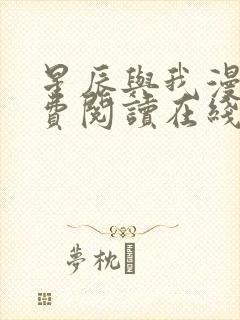 星辰與我漫
費閱讀在綫
夢枕